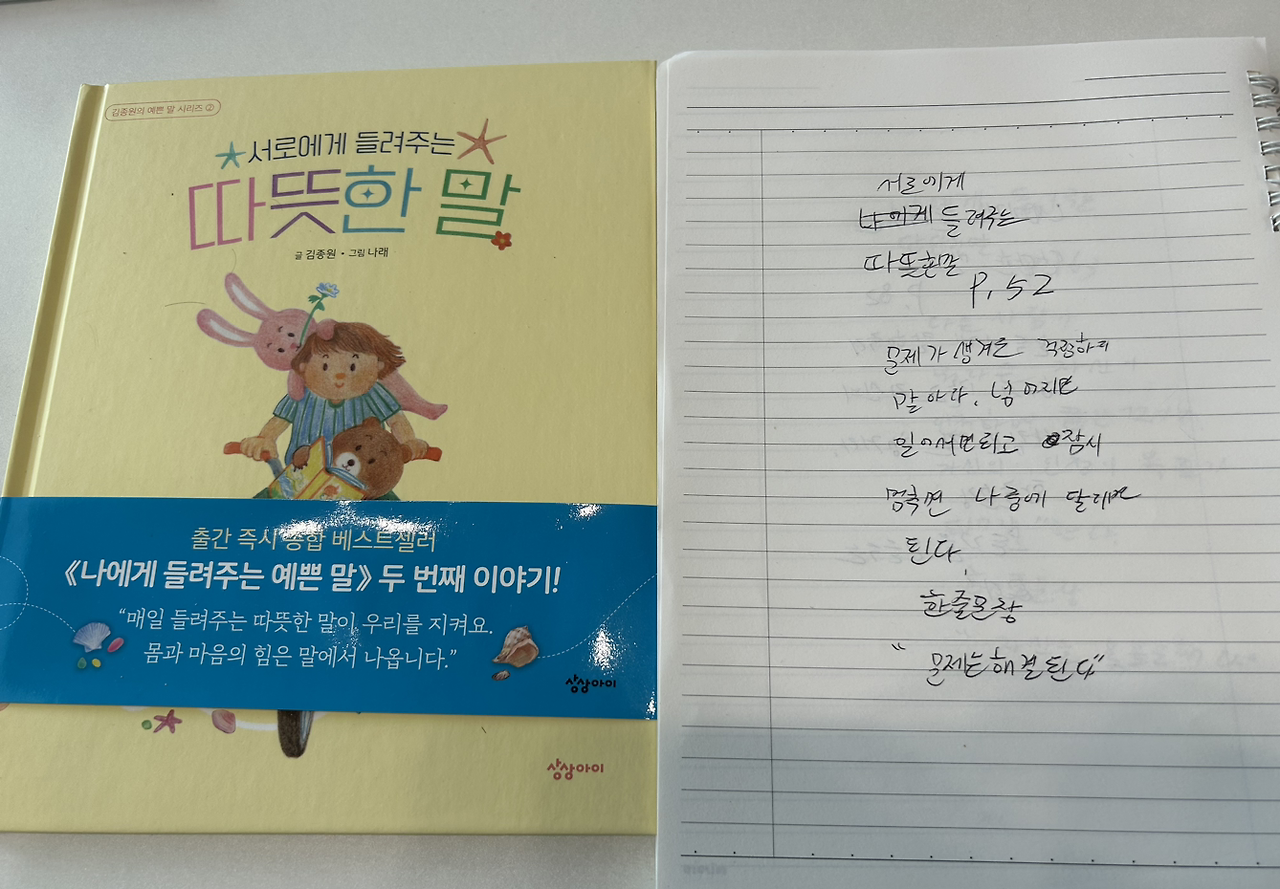 김종원의 예쁜 말 시리즈 ②
서로에게 들려주는
따뜻한 말
글 김종원 • 그림 나래
출간 즉시 종합 베스트셀러
《나에게 들려주는 예쁜 말》 두 번째 이야기!
“매일 들려주는 따뜻한 말이 우리를 지켜요.
몸과 마음의 힘은 말에서 나옵니다.”
상상아이
상상아이
서로에게
나에게 들려주는
따뜻한말
P. 52
문제가 생겨은 걱정하지
말아다. 넘어지면
일어서면되고 잠시
멈추면 나중에 달리면
된다.
한줄문장
“문제는해결된다”